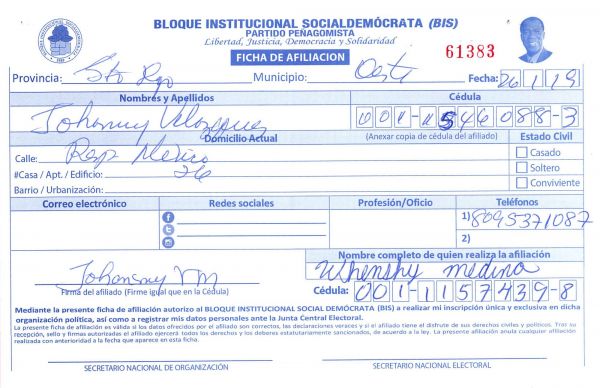 BLOQUE INSTITUCIONAL SOCIALDEMÓCRATA (BIS)
PARTIDO PEÑAGOMISTA
Libertad, Justicia, Democracia y Solidaridad
FICHA DE AFILIACION
61383
Provincia: Sto Dgo Municipio: Oeste Fecha: 26/1/19
Nombres y Apellidos Cédula
Johanny Velazquez 001-1546088-3
Domicilio Actual (Anexar copia de cédula del afiliado) Estado Civil
Calle: Rep Mexico Casado
#Casa / Apt. / Edificio: 26 Soltero
Barrio / Urbanización: Conviviente
Correo electrónico Redes sociales Profesión/Oficio Teléfonos
1) 8095371087
2)
Nombre completo de quien realiza la afiliación
medina
Firma del afiliado (Firme igual que en la Cédula) Cédula: 001-1157439-8
Mediante la presente ficha de afiliación autorizo al BLOQUE INSTITUCIONAL SOCIAL DEMÓCRATA (BIS) a realizar mi inscripción única y exclusiva en dicha
organización política, así como a registrar mis datos personales ante la Junta Central Electoral.
La presente ficha de afiliación es válida si los datos ofrecidos por el afiliado son correctos, las declaraciones veraces y si el afiliado tiene el disfrute de sus derechos civiles y políticos. Tras su
recepción, sello y firmas autorizadas el afiliado ejercerá todos los derechos y los deberes estatutariamente sancionados, de acuerdo a la ley. La presente afiliación anula cualquier afiliación
realizada con anterioridad a la fecha que aparece en esta ficha.
SECRETARIO NACIONAL DE ORGANIZACIÓN SECRETARIO NACIONAL ELECTORAL